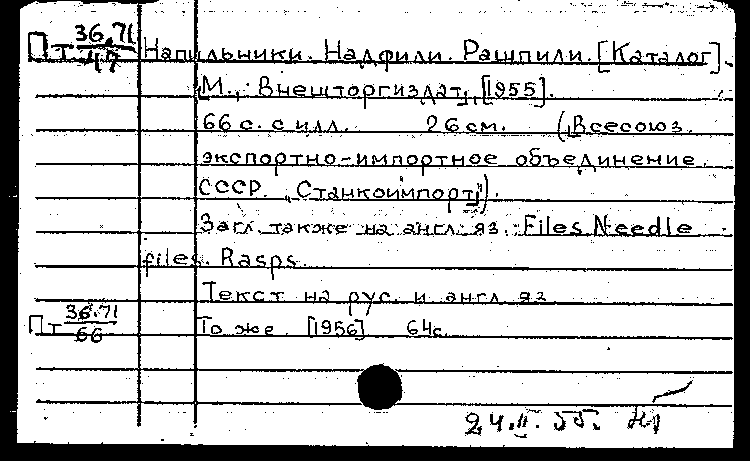 Пт 36.71/47 Напильники. Надфили. Рашпили. [Каталог].
М., Внешторгиздат, [1955].
66 с. с илл. 26 см. (Всесоюз.
экспортно-импортное объединение
СССР. "Станкоимпорт").
Загл. также на англ. яз.: Files. Needle
files. Rasps.
Текст на рус. и англ. яз.
Пт 36.71/66 То же. [1956]. 64 с.
24.II.55.